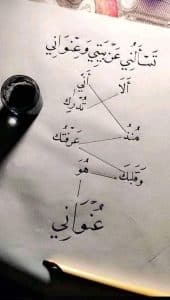 تَسْأَلُنِي عَنْ بَيْتِي وَعِنْوَانِي
أَلَا أَنِّي
تُدْرِك
مُنْذُ عَرَفْتُك
وَقَلبَك هُوَ
عُنْوَانِي